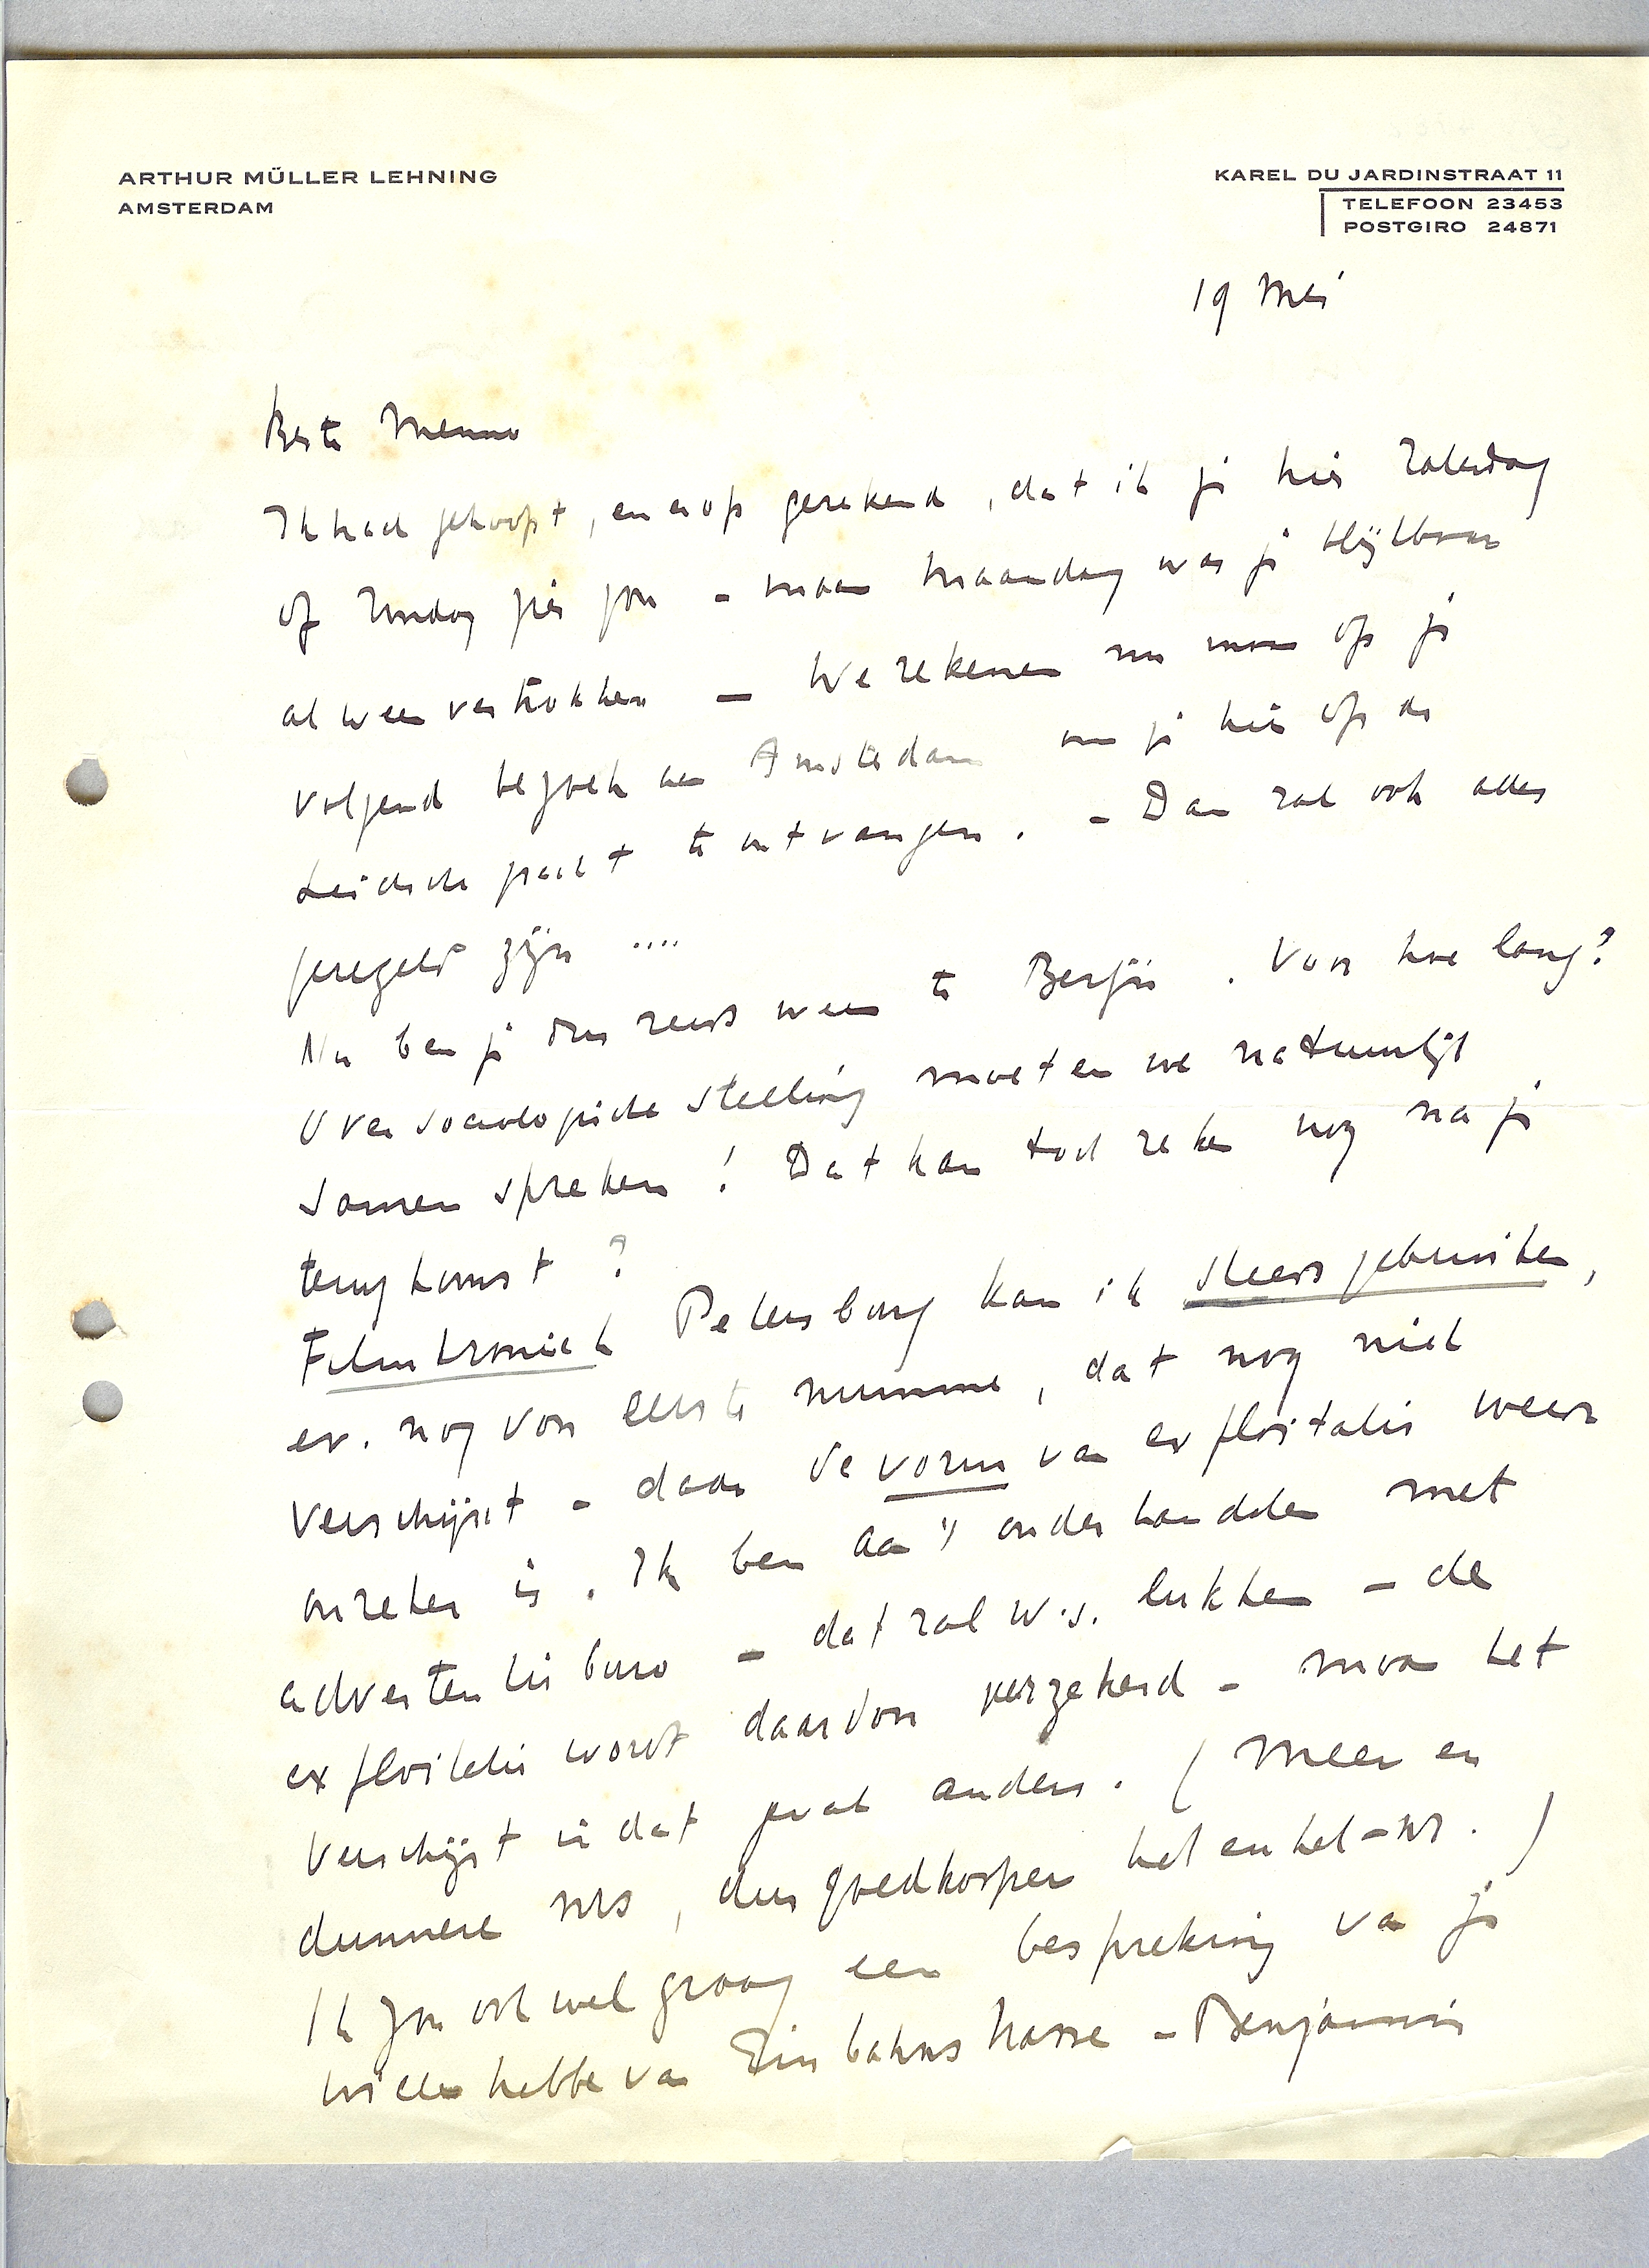 ARTHUR MÜLLER LEHNING
AMSTERDAM
KAREL DU JARDINSTRAAT 11
TELEFOON 23453
POSTGIRO 24871
19 Mei
Beste Menno
Ik had gehoopt, en erop gerekend, dat ik je hier Zaterdag
of Zondag zien zou - maar Maandag was je blijkbaar
al weer vertrokken — We rekenen nu maar op je
volgend bezoek aan Amsterdam om je hier op de
Leidsche gracht te ontvangen. - Dan zal ook alles
geregeld zijn ....
Nu ben je dus reeds weer te Berlijn. Voor hoe lang?
Over sociologische stelling moeten we natuurlijk
samen spreken! Dat kan toch zeker nog na je
terugkomst?
Filmkroniek Petersburg kan ik steeds gebruiken,
ev. nog voor eerste nummer, dat nog niet
verschijnt - daar de vorm van exploitatie weer
onzeker is. Ik ben aan 't onderhandelen met
advertentie buro - dat zal w.s. lukken - de
exploitatie wordt daardoor verzekerd - maar het
verschijnt in dat geval anders. (Meer en
dunnere nrs, dus goedkooper het enkel-nr.)
Ik zou ook wel graag een bespreking van je
willen hebben van Einbahnstrasse - Benjamin